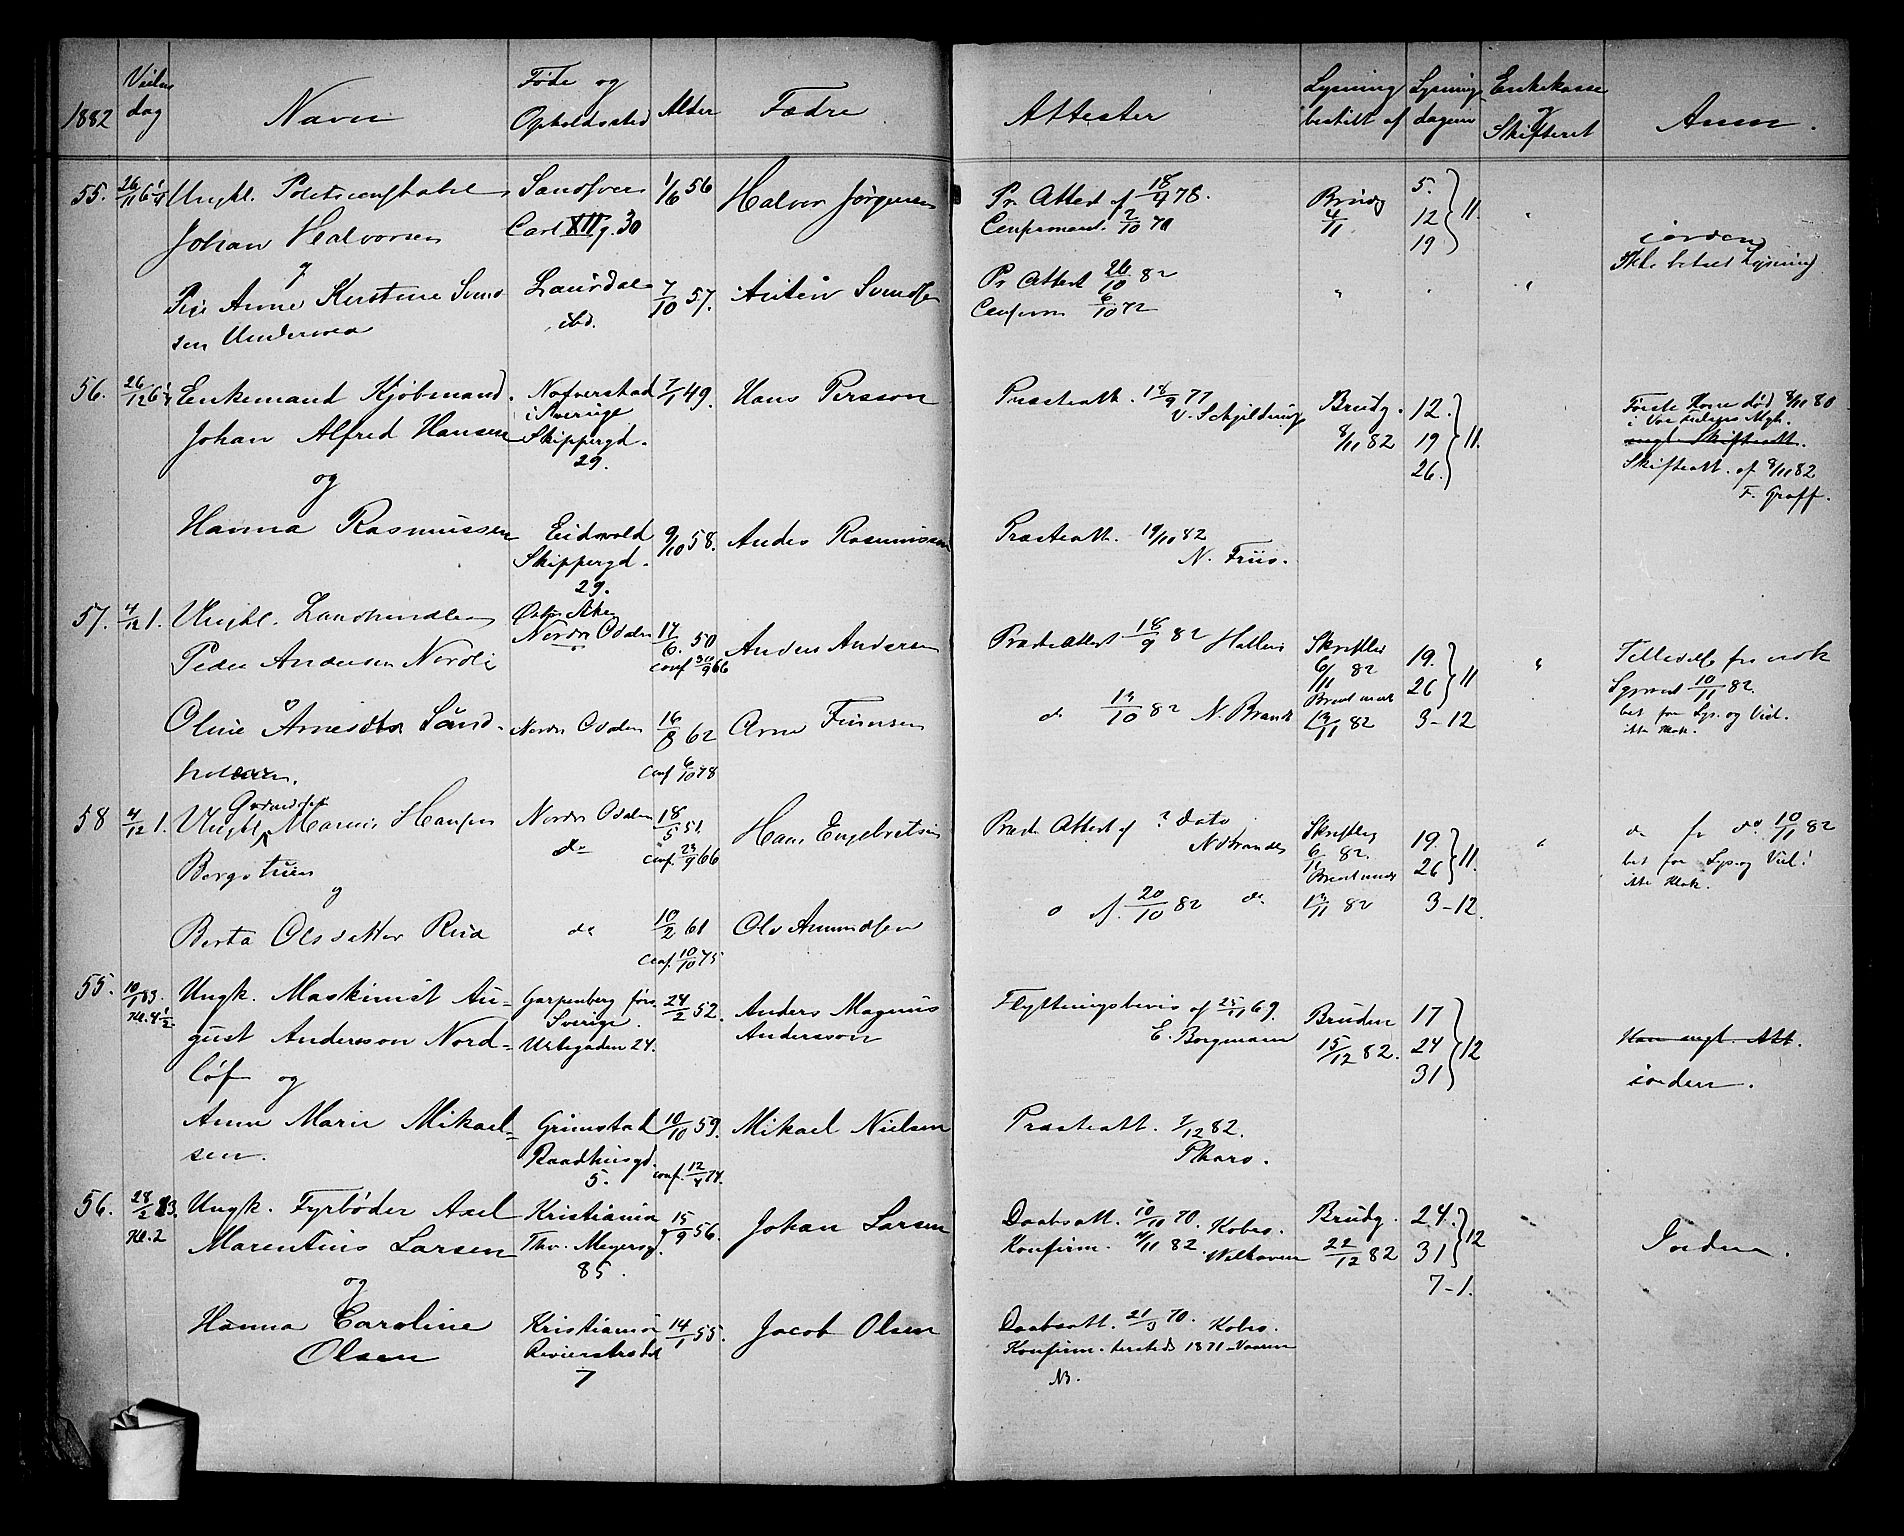 1882
Vielses dag
Navn
Føde og Opholdssted
Alder
Fædre
Attester
Lysning bestilt af
Lysnings dagene
Enkekasse og Skifteret
Anm.
55. 26/11 6 1/2 Ungkl. Politiconstabel Sandsvær 1/6 56 Halvor Jørgensen Pr. Attest af 18/9 78. Brudg 5.
Johan Halvorsen Carl XII g. 30 Confirmeret 2/10 70 4/11 12 11.
og 19 iorden
Pige Anne Kirstine Svend Laurdal 7/10 57. Anton Svendsen Pr Attest 26/10 82 Ikke betalt Lysning
sen ibd. Confirm 6/10 72
56. 26/12 6 1/2 Enkemand Kjøbmand Nafverstad 7/1 49. Hans Persson Præsteatt. 18/9 77 Brudg. 12. Første Kone død 8/11 80
Johan Alfred Hansen i Sverige V. Schjelderup 8/11 82 19 11. i Vor Frelsers Mgh.
Skippergd. 29. 26. mgl. Skifteatt.
og Skifteatt. af 8/11 82
F. Graff.
Hanna Rasmussen Eidsvold 9/10 58. Andes Rasmussen Præsteatt. 19/10 82
Skippergd. N. Friis.
29.
57. 4/12 1. Ungkl. Landhandler
Peder Andersen Nordli Nordre Odalen 17/6. 50 Anders Andersen Præsteattest 18/9 82 Skriftlig 19. Tilladelse fra
conf 30/9 66 6/11 82 26 11 10/11 82.
Oline Arnesdtr Sand- Nordre Odalen 16/8 62 Arne Finnsen do 13/10 82 N. Brandt 13/11 82 3-12 bet for Lys. og Viel.
conf 6/10 78 ikke Klok.
58 4/12 1. Ungkl. Gaardmand Marius Hansen Nordre Odalen 18/5 51. Hans Engebretsen Præste Attest af ? Dato Skriftlig 19. do fr do 10/11 82
Bergstuen do conf. 29/9 66 N. Brandt 6/11 82. 26 11. bet for Lys. og Viel.
og ikke Klok.
Berta Olsdatter Rud do 10/2 61 Ole Amundsen do af 20/10 82 do 13/11 82 3-12.
conf. 10/10 75
55. 10/1 83. Ungk. Maskinist Au- Garpenbergförs. 24/2 52. Anders Magnus Flyttningsbevis af 25/11 69. Bruden 17
Kl. 4 1/2. gust Andersson Nord- Sverige. Andersson E. Borgmann 15/12 82. 24 12 Han mgl. Att.
löf og Urtegaden 24. 31 iorden.
Anne Marie Mikael- Grimstad 10/10 59. Mikael Nielsen Præsteatt. 7/12 82.
sen. Raadhusgd. 5. conf. 12/4 74. Pharo.
56. 28/2 83. Ungk. Fyrbøder Axel Kristiania 15/9 56. Johan Larsen Daabsatt. 10/10 70. Kobro. Brudg. 24.
Kl. 2 Marentius Larsen Thv. Meyersg. 85. Konfirm. 4/11 82. Welhaven 22/12 82 31 12 Iorden.
og 7-1.
Hanna Caroline Kristiania 14/1 55. Jacob Olsen Daabsatt. 21/3 70. Kobro.
Olsen 7 Konfirm. 1871
NB.